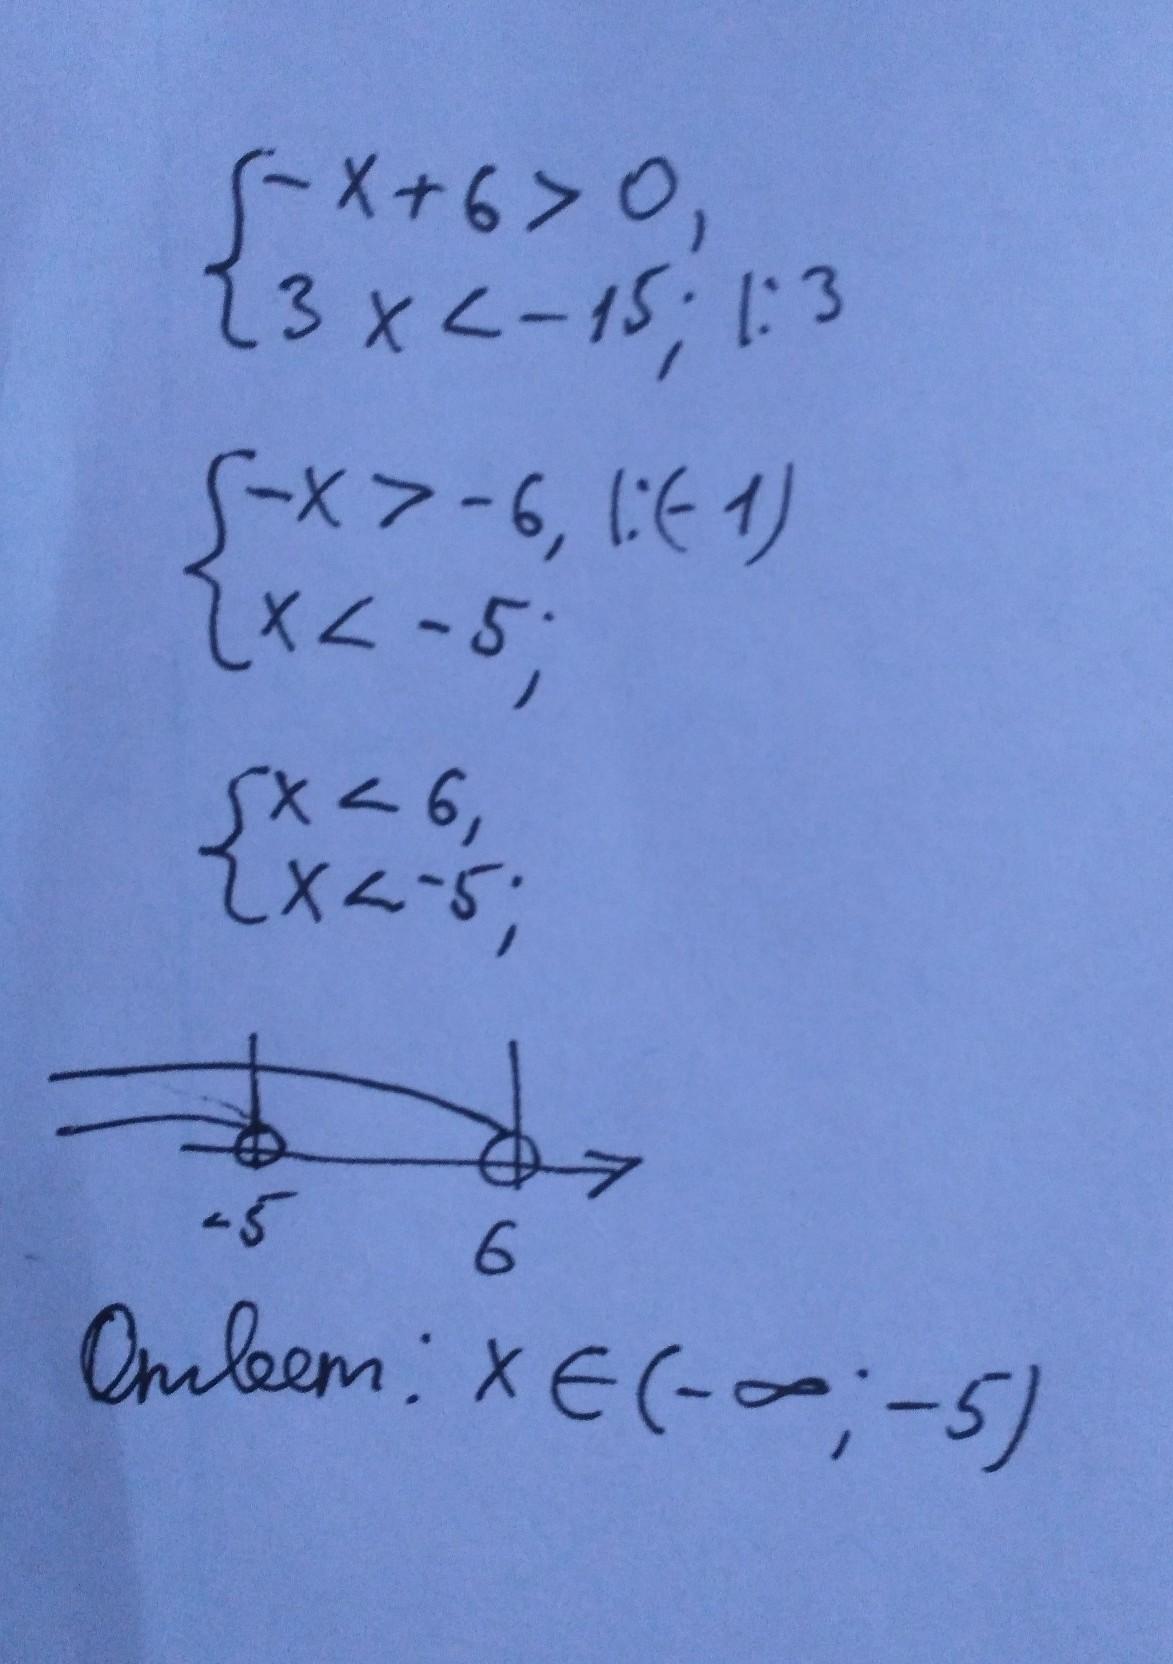 {-x+6>0,
3x<-15; |:3
{-x>-6, |:(-1)
x<-5;
{x<6,
x<-5;
-5 6
Ответ: x∈(-∞;-5)